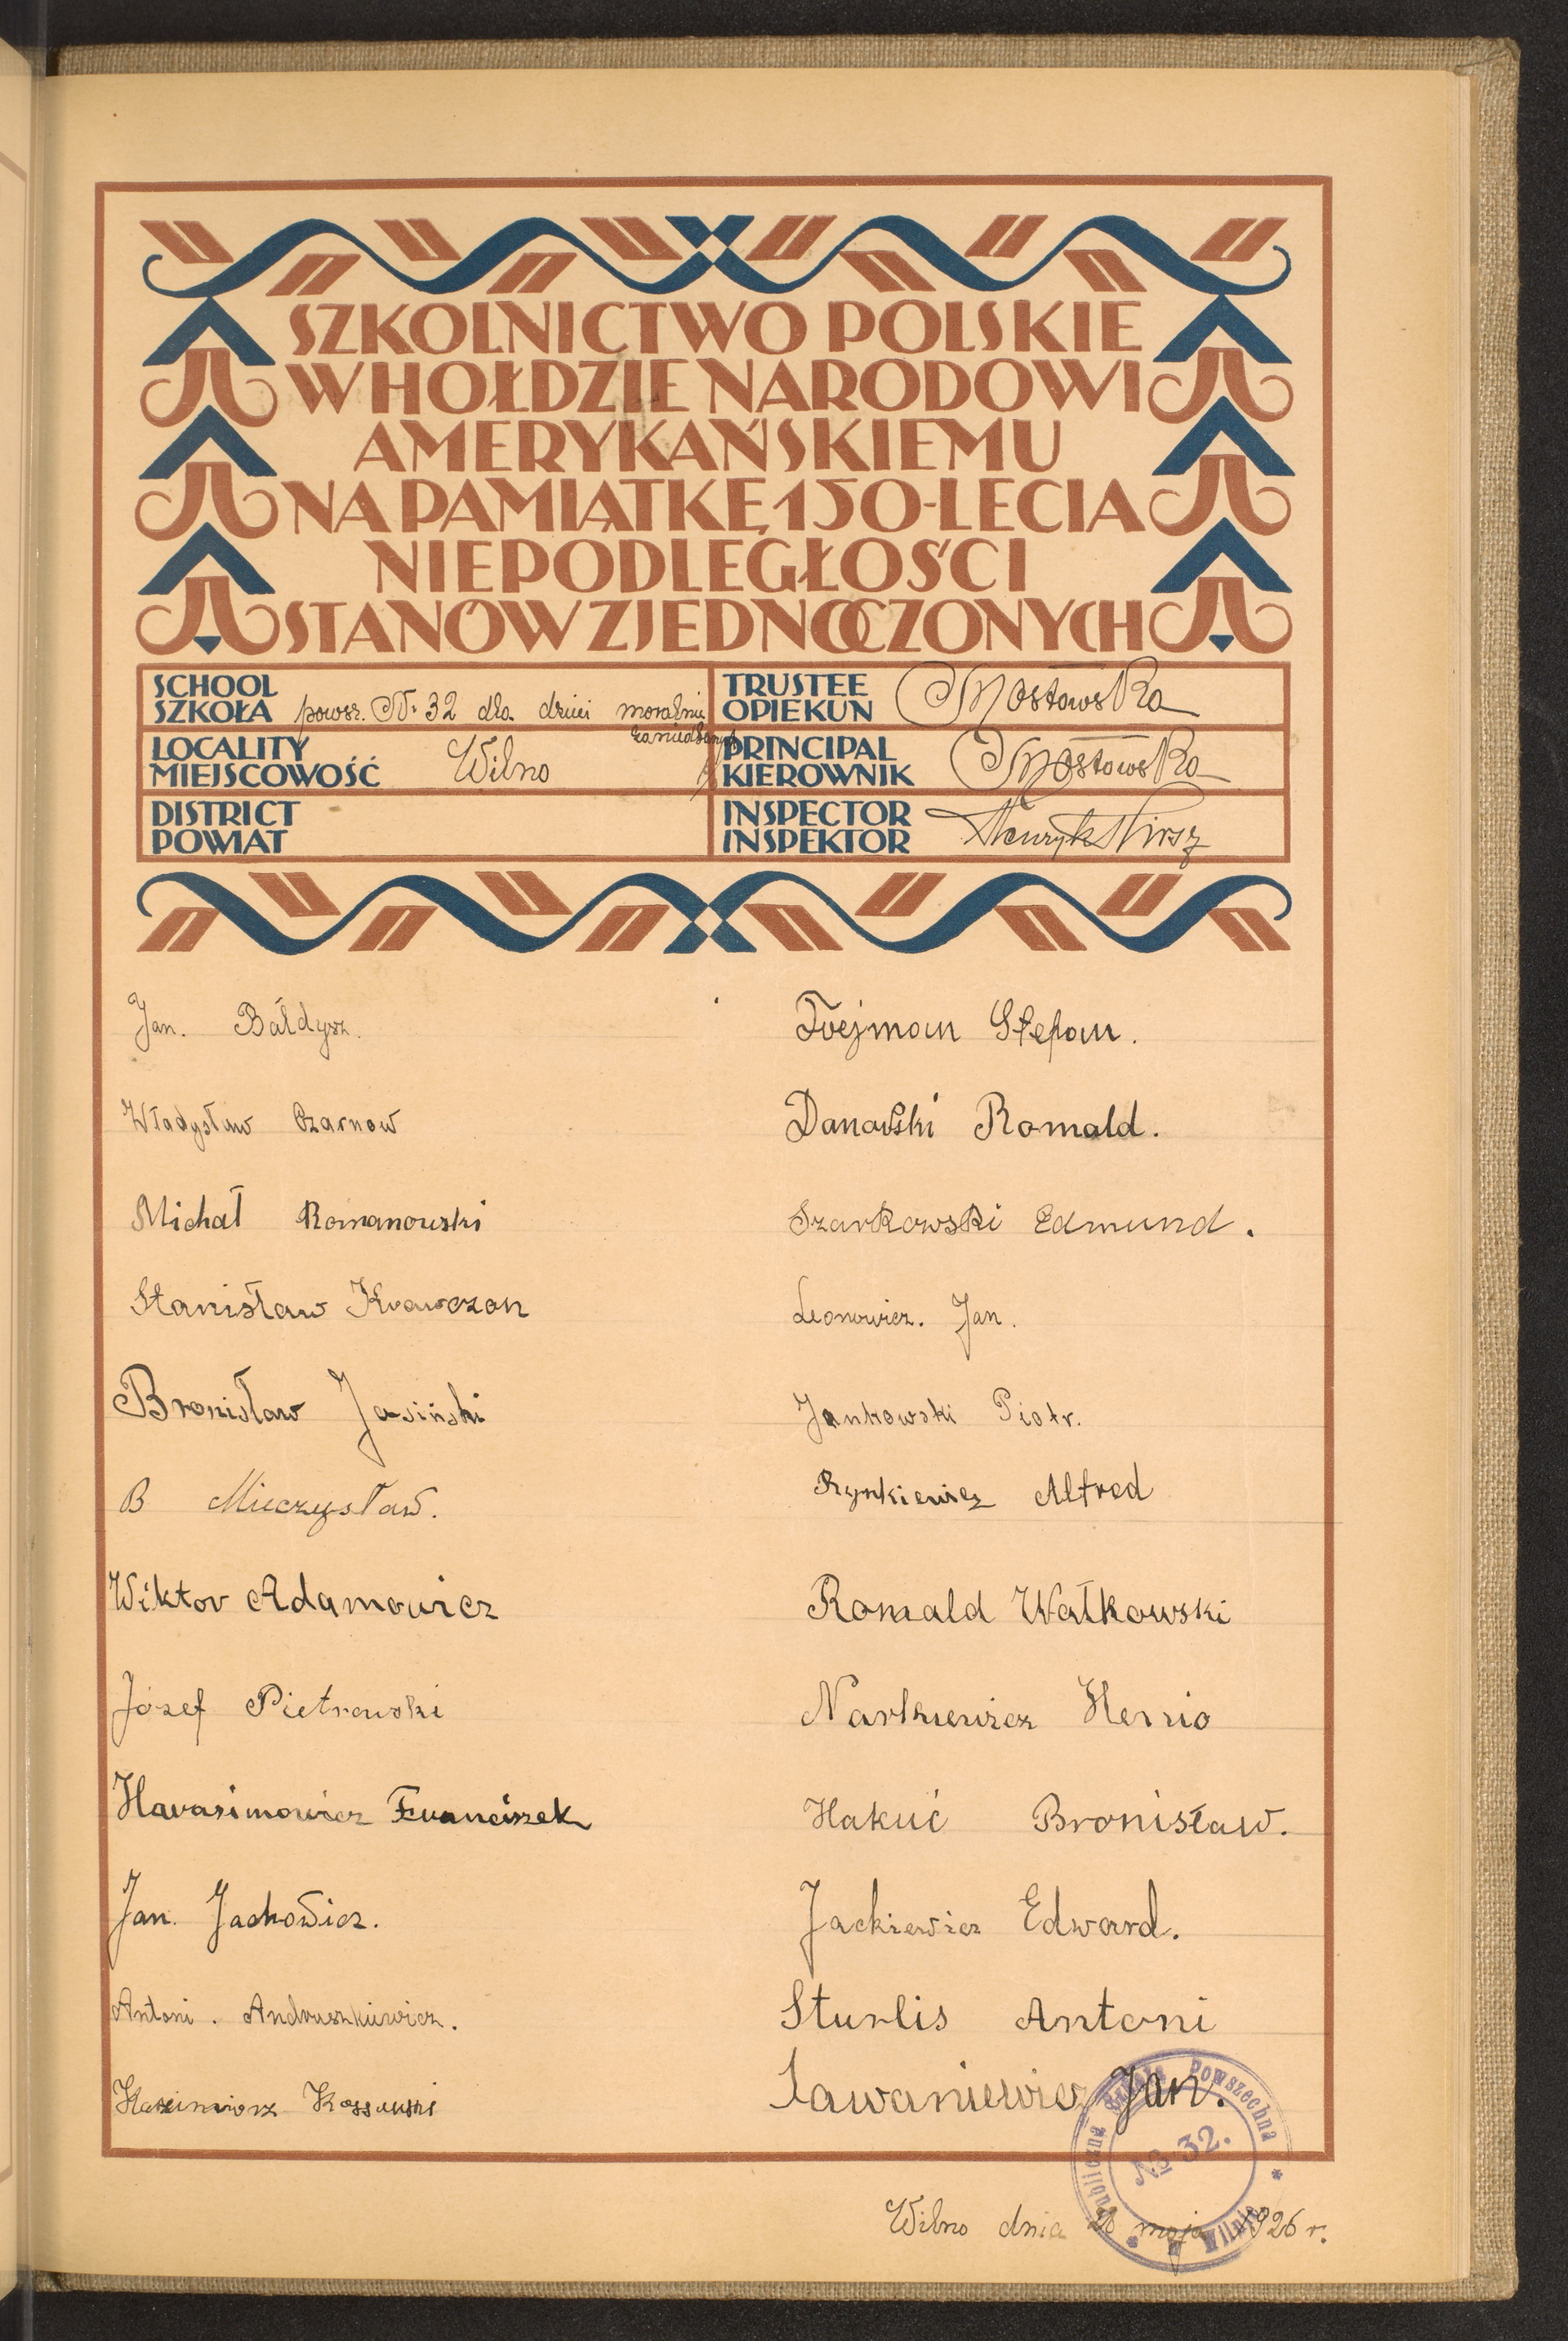 SZKOLNICTWO POLSKIE
W HOŁDZIE NARODOWI
AMERYKAŃSKIEMU
NA PAMIĄTKĘ 150-LECIA
NIEPODLEGŁOŚCI
STANÓW ZJEDNOCZONYCH
SCHOOL
SZKOŁA powsz. № 32 dla dzieci moralnie
zaniedbanych
TRUSTEE
OPIEKUN Mostowska
LOCALITY
MIEJSCOWOŚĆ Wilno
PRINCIPAL
KIEROWNIK Mostowska
DISTRICT
POWIAT
INSPECTOR
INSPEKTOR Henryk
Jan. Bałdysz.
Władysław Czarnow
Michał Romanowski
Stanisław Krawczon
Bronisław Jasiński
B Mieczysław.
Wiktor Adamowicz
Józef Pietrowski
Harasimowicz Franciszek
Jan. Jachowicz.
Antoni. Andruszkiewicz.
Kazimierz Kossowski
Frejman Stefan.
Danowski Romald.
Szarkowski Edmund.
Leonowicz. Jan.
Jankowski Piotr.
Rynkiewicz Alfred
Romald Wałkowski
Narkiewicz Henio
Hakuć Bronisław.
Jackiewicz Edward.
Sturlis Antoni
Ławaniewicz Jan.
Publiczna Szkoła Powszechna
№ 32.
w Wilnie
Wilno dnia maja 1926 r.